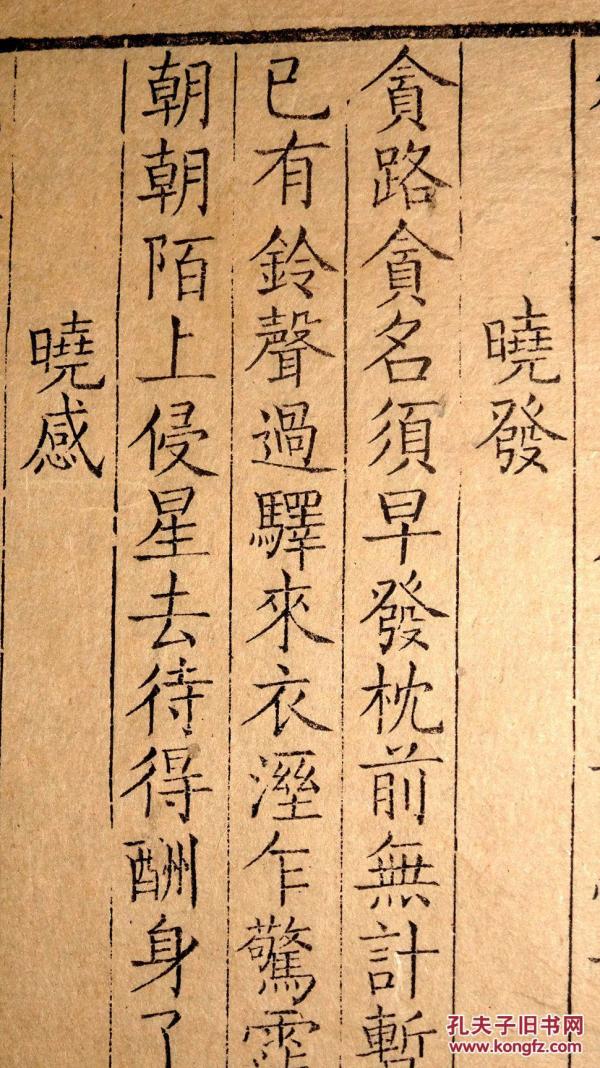 曉發
貪路貪名須早發枕前無計暫
已有鈴聲過驛來衣溼乍驚霑
朝朝陌上侵星去待得酬身了
曉感
孔夫子旧书网
www.kongfz.com